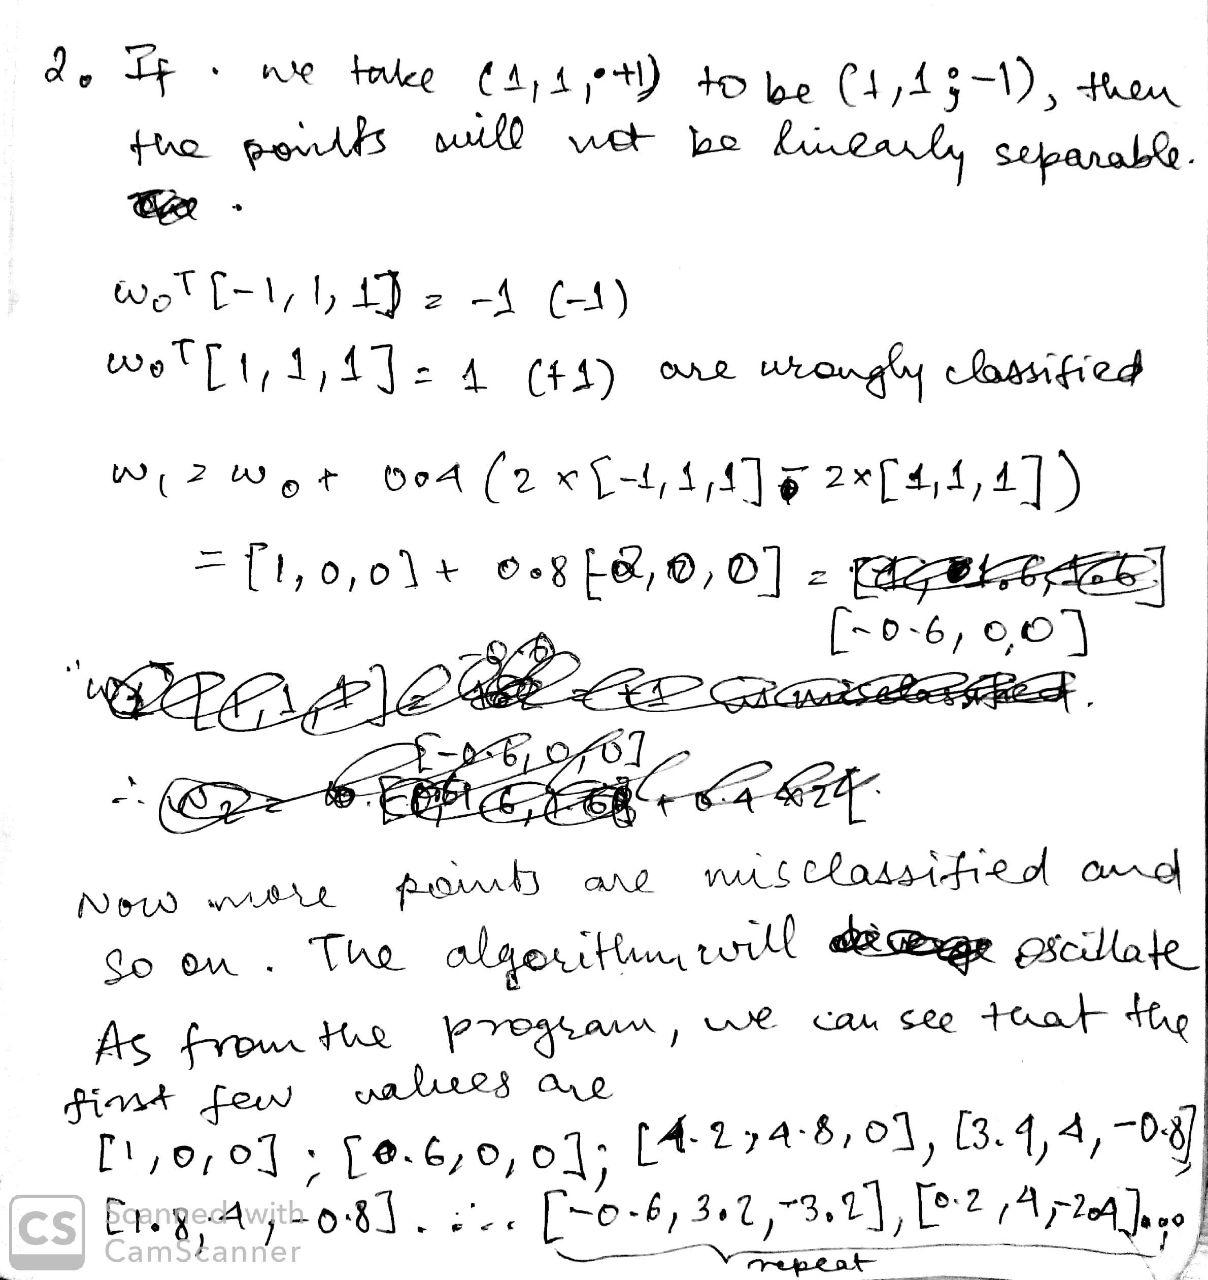 2. If we take (1,1;+1) to be (1,1;-1), then
the points will not be linearly separable.
w0T[-1,1,1] = -1 (-1)
w0T[1,1,1] = 1 (+1) are wrongly classified
w1 = w0 + 0.4 (2×[-1,1,1] - 2×[1,1,1])
= [1,0,0] + 0.8 [-2,0,0] =
[-0.6, 0,0]
Now more points are misclassified and
so on. The algorithm will oscillate
As from the program, we can see that the
first few values are
[1,0,0]; [0.6,0,0]; [4.2,4.8,0], [3.4,4,-0.8]
[1.8,4,-0.8]. ... [-0.6,3.2,-3.2], [0.2,4,-2.4]...
repeat
CS Scanned with
CamScanner